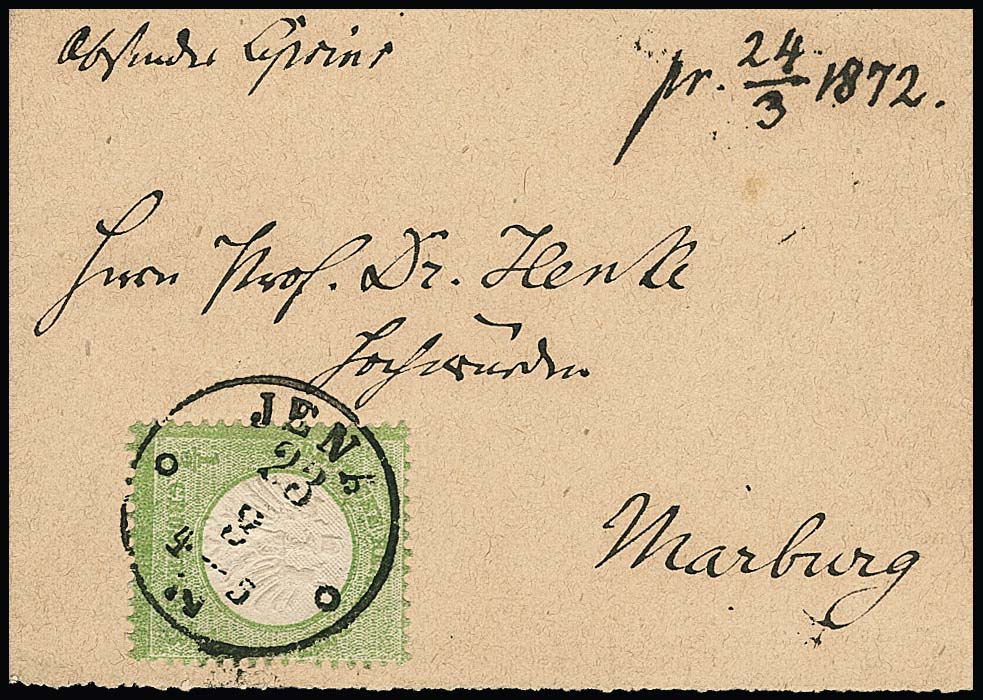 Absender
pr. 24/3 1872.
Herrn Prof. Dr. Henke
Hochwürden
JENA
23
3
Marburg